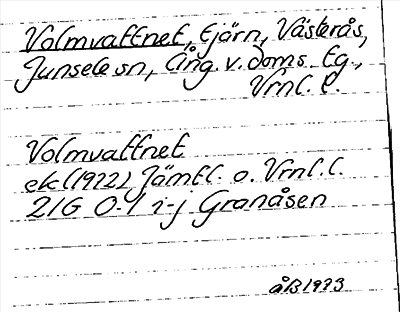 Volmvattnet, tjärn, Västerås,
Junsele sn, Ång. v. doms. tg.,
Vrnl. l.
Volmvattnet
ek (1922) Jämtl. o. Vrnl. l.
21G 0-1 i-j Granåsen
åB 1973